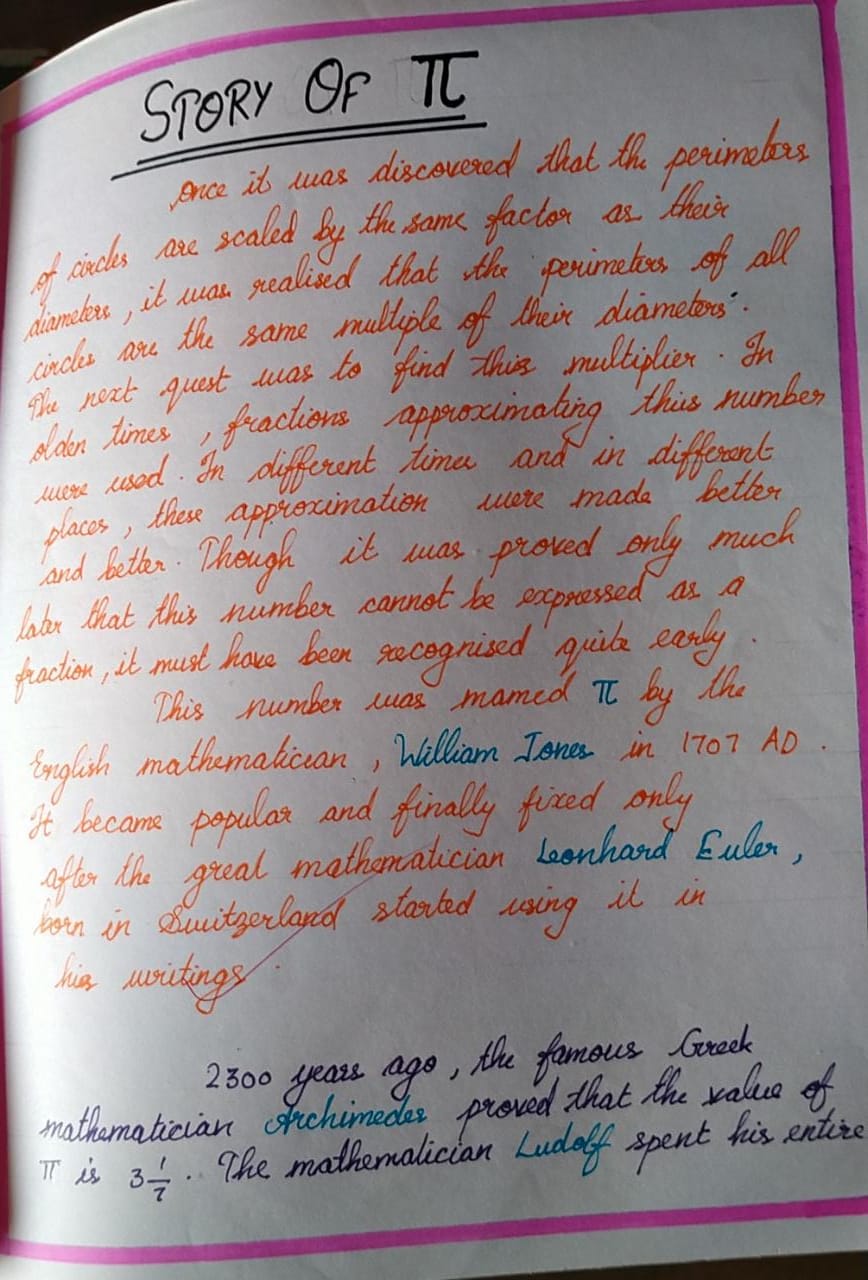 STORY OF π
Once it was discovered that the perimeters
of circles are scaled by the same factor as their
diameters, it was realised that the perimeters of all
circles are the same multiple of their diameters.
The next quest was to find this multiplier. In
olden times, fractions approximating this number
were used. In different times and in different
places, these approximation were made better
and better. Though it was proved only much
later that this number cannot be expressed as a
fraction, it must have been recognised quite early.
This number was mamed π by the
English mathematician, William Jones in 1707 AD.
It became popular and finally fixed only
after the great mathematician Leonhard Euler,
born in Switzerland started using it in
his writings.
2300 years ago, the famous Greek
mathematician Archimedes proved that the value of
π is 3 1/7. The mathematician Ludolf spent his entire